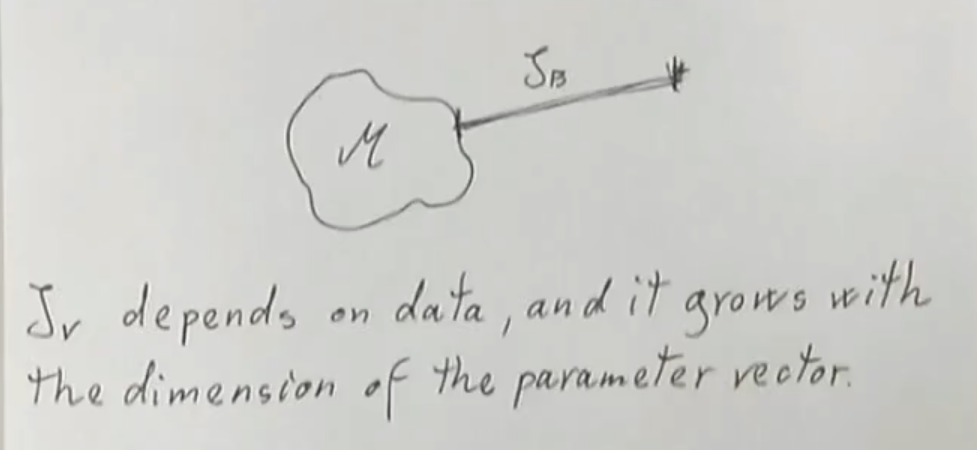 J_B
M
J_v depends on data, and it grows with
the dimension of the parameter vector.